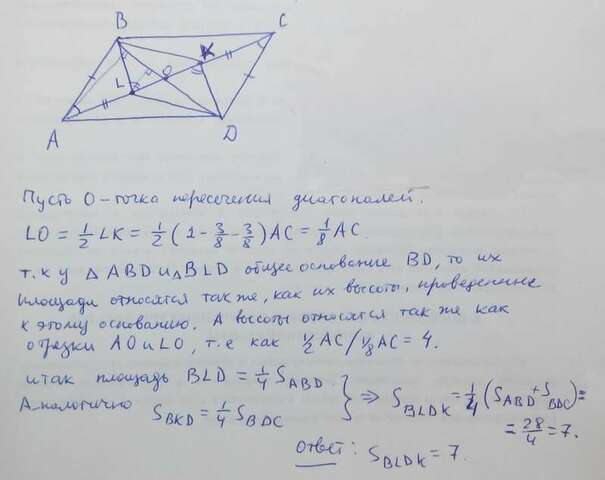 B
C
K
L
O
A
D
Пусть O - точка пересечения диагоналей.
LO = 1/2 LK = 1/2 (1 - 3/8 - 3/8) AC = 1/8 AC.
т.к у △ ABD и △ BLD общее основание BD, то их
площади относятся так же, как их высоты, проведенные
к этому основанию. А высоты относятся так же как
отрезки AO и LO, т.е как 1/2 AC / 1/8 AC = 4.
итак площадь BLD = 1/4 S_ABD
Аналогично S_BKD = 1/4 S_BDC } ⇒ S_BLDK = 1/4 (S_ABD + S_BDC) =
= 28/4 = 7.
Ответ: S_BLDK = 7.